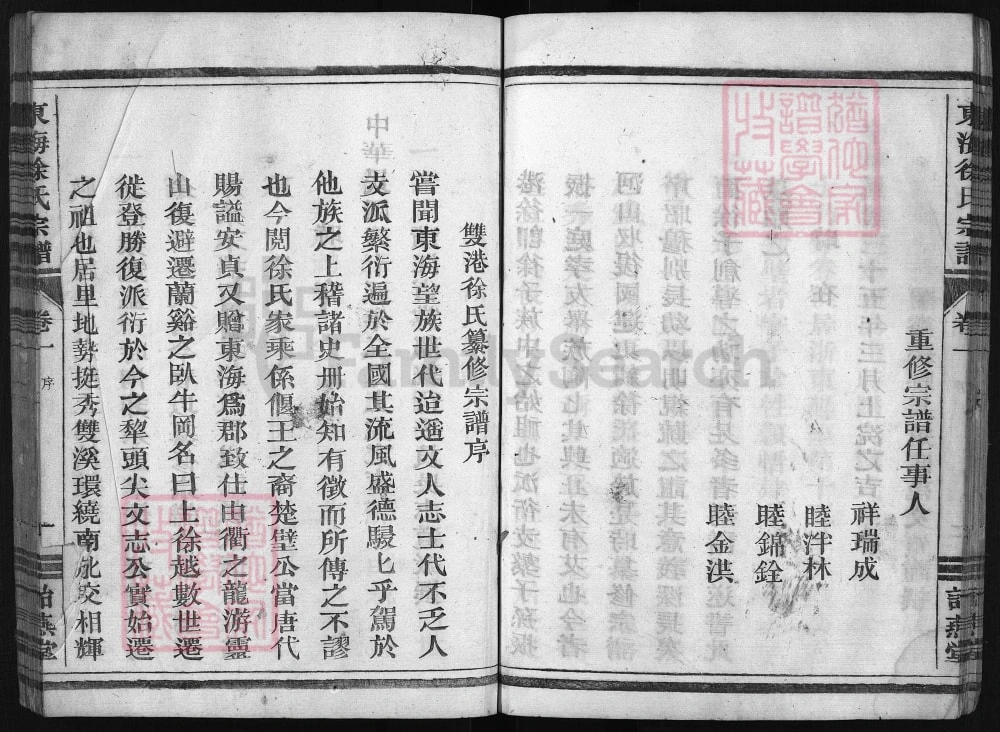 東海徐氏宗譜
卷一
重修宗譜任事人
祥瑞成
睦泮林
睦錦銓
睦金洪
詒燕堂
雙港徐氏纂修宗譜序
嘗聞東海望族世代迢遞文人志士代不乏人
支派繁衍遍於全國其流風盛德駸化乎駕於
他族之上稽諸史冊始知有徵而所傳之不謬
也今閱徐氏家乘係偃王之裔楚璧公當唐代
賜謚安真又贈東海為郡致仕由衢之龍游靈
山復避遷蘭谿之臥牛岡名曰上徐越數世遷
徙登勝復派衍於今之犂頭尖文志公實始遷
之祖也居里地勢挺秀雙溪環繞南㲼交相輝
東海徐氏宗譜
卷一
序
一
詒燕堂
FamilySearch